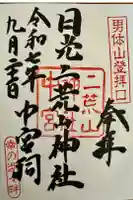 男体山登拝口
奉拝
日光二荒山神社
二荒山
中宮祠
令和七年
九月